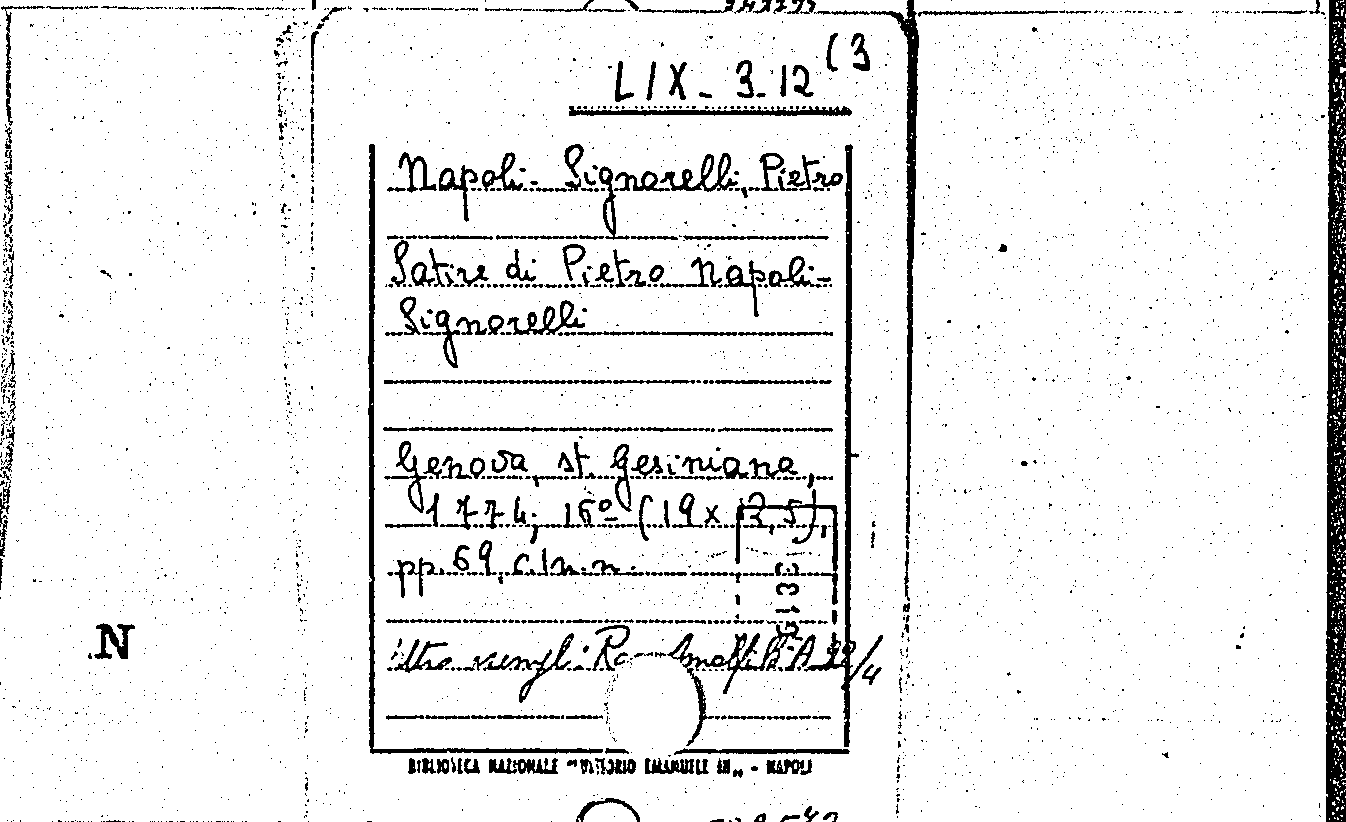 LIX-3-12 (3
Napoli-Signorelli, Pietro
Satire di Pietro Napoli-
Signorelli
Genova, st. Gesiniana,
1774; 16º (19x12,5),
pp. 69, c.1n.n.
N
BIBLIOTECA NAZIONALE "VITTORIO EMANUELE III" - NAPOLI